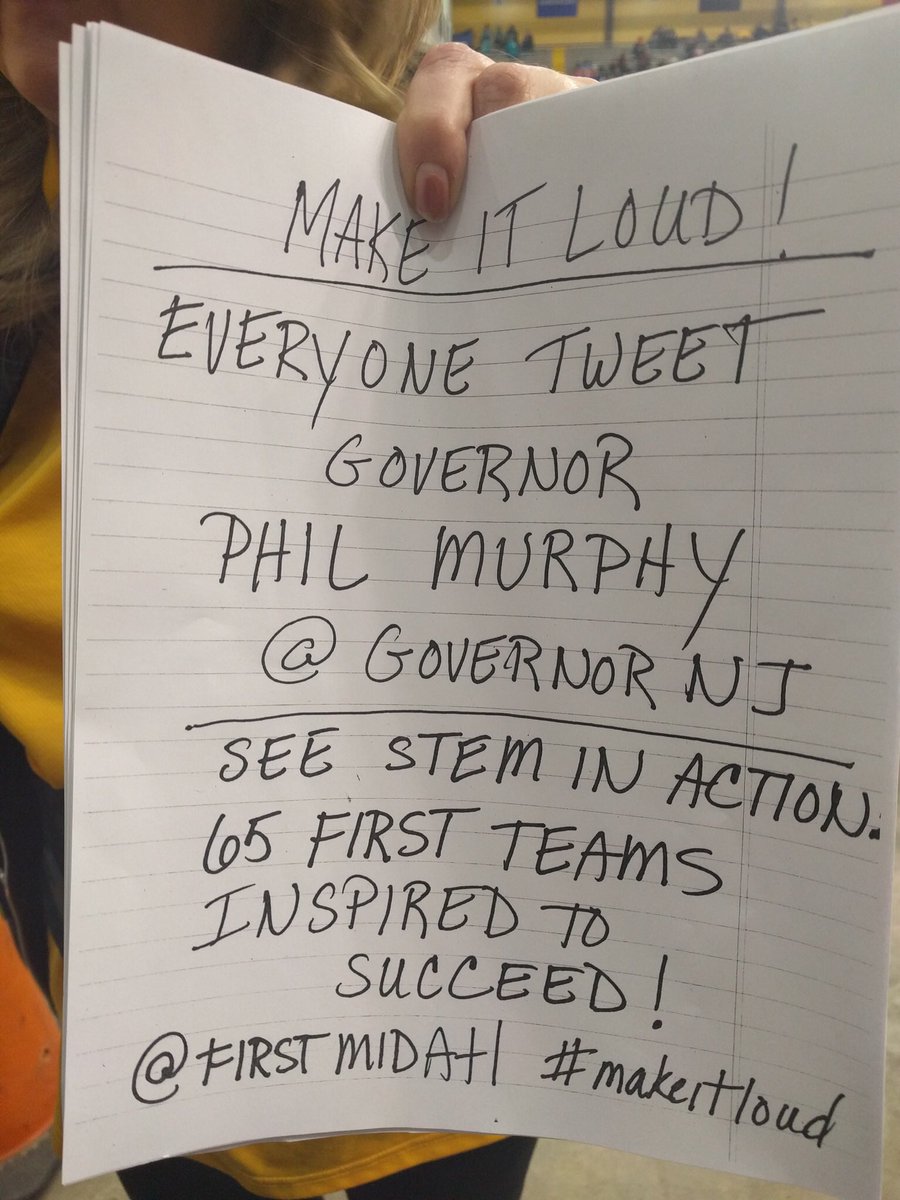 MAKE IT LOUD!
EVERYONE TWEET
GOVERNOR
PHIL MURPHY
@GOVERNOR NJ
SEE STEM IN ACTION.
65 FIRST TEAMS
INSPIRED TO
SUCCEED!
@FIRSTMIDAtl #makeitloud